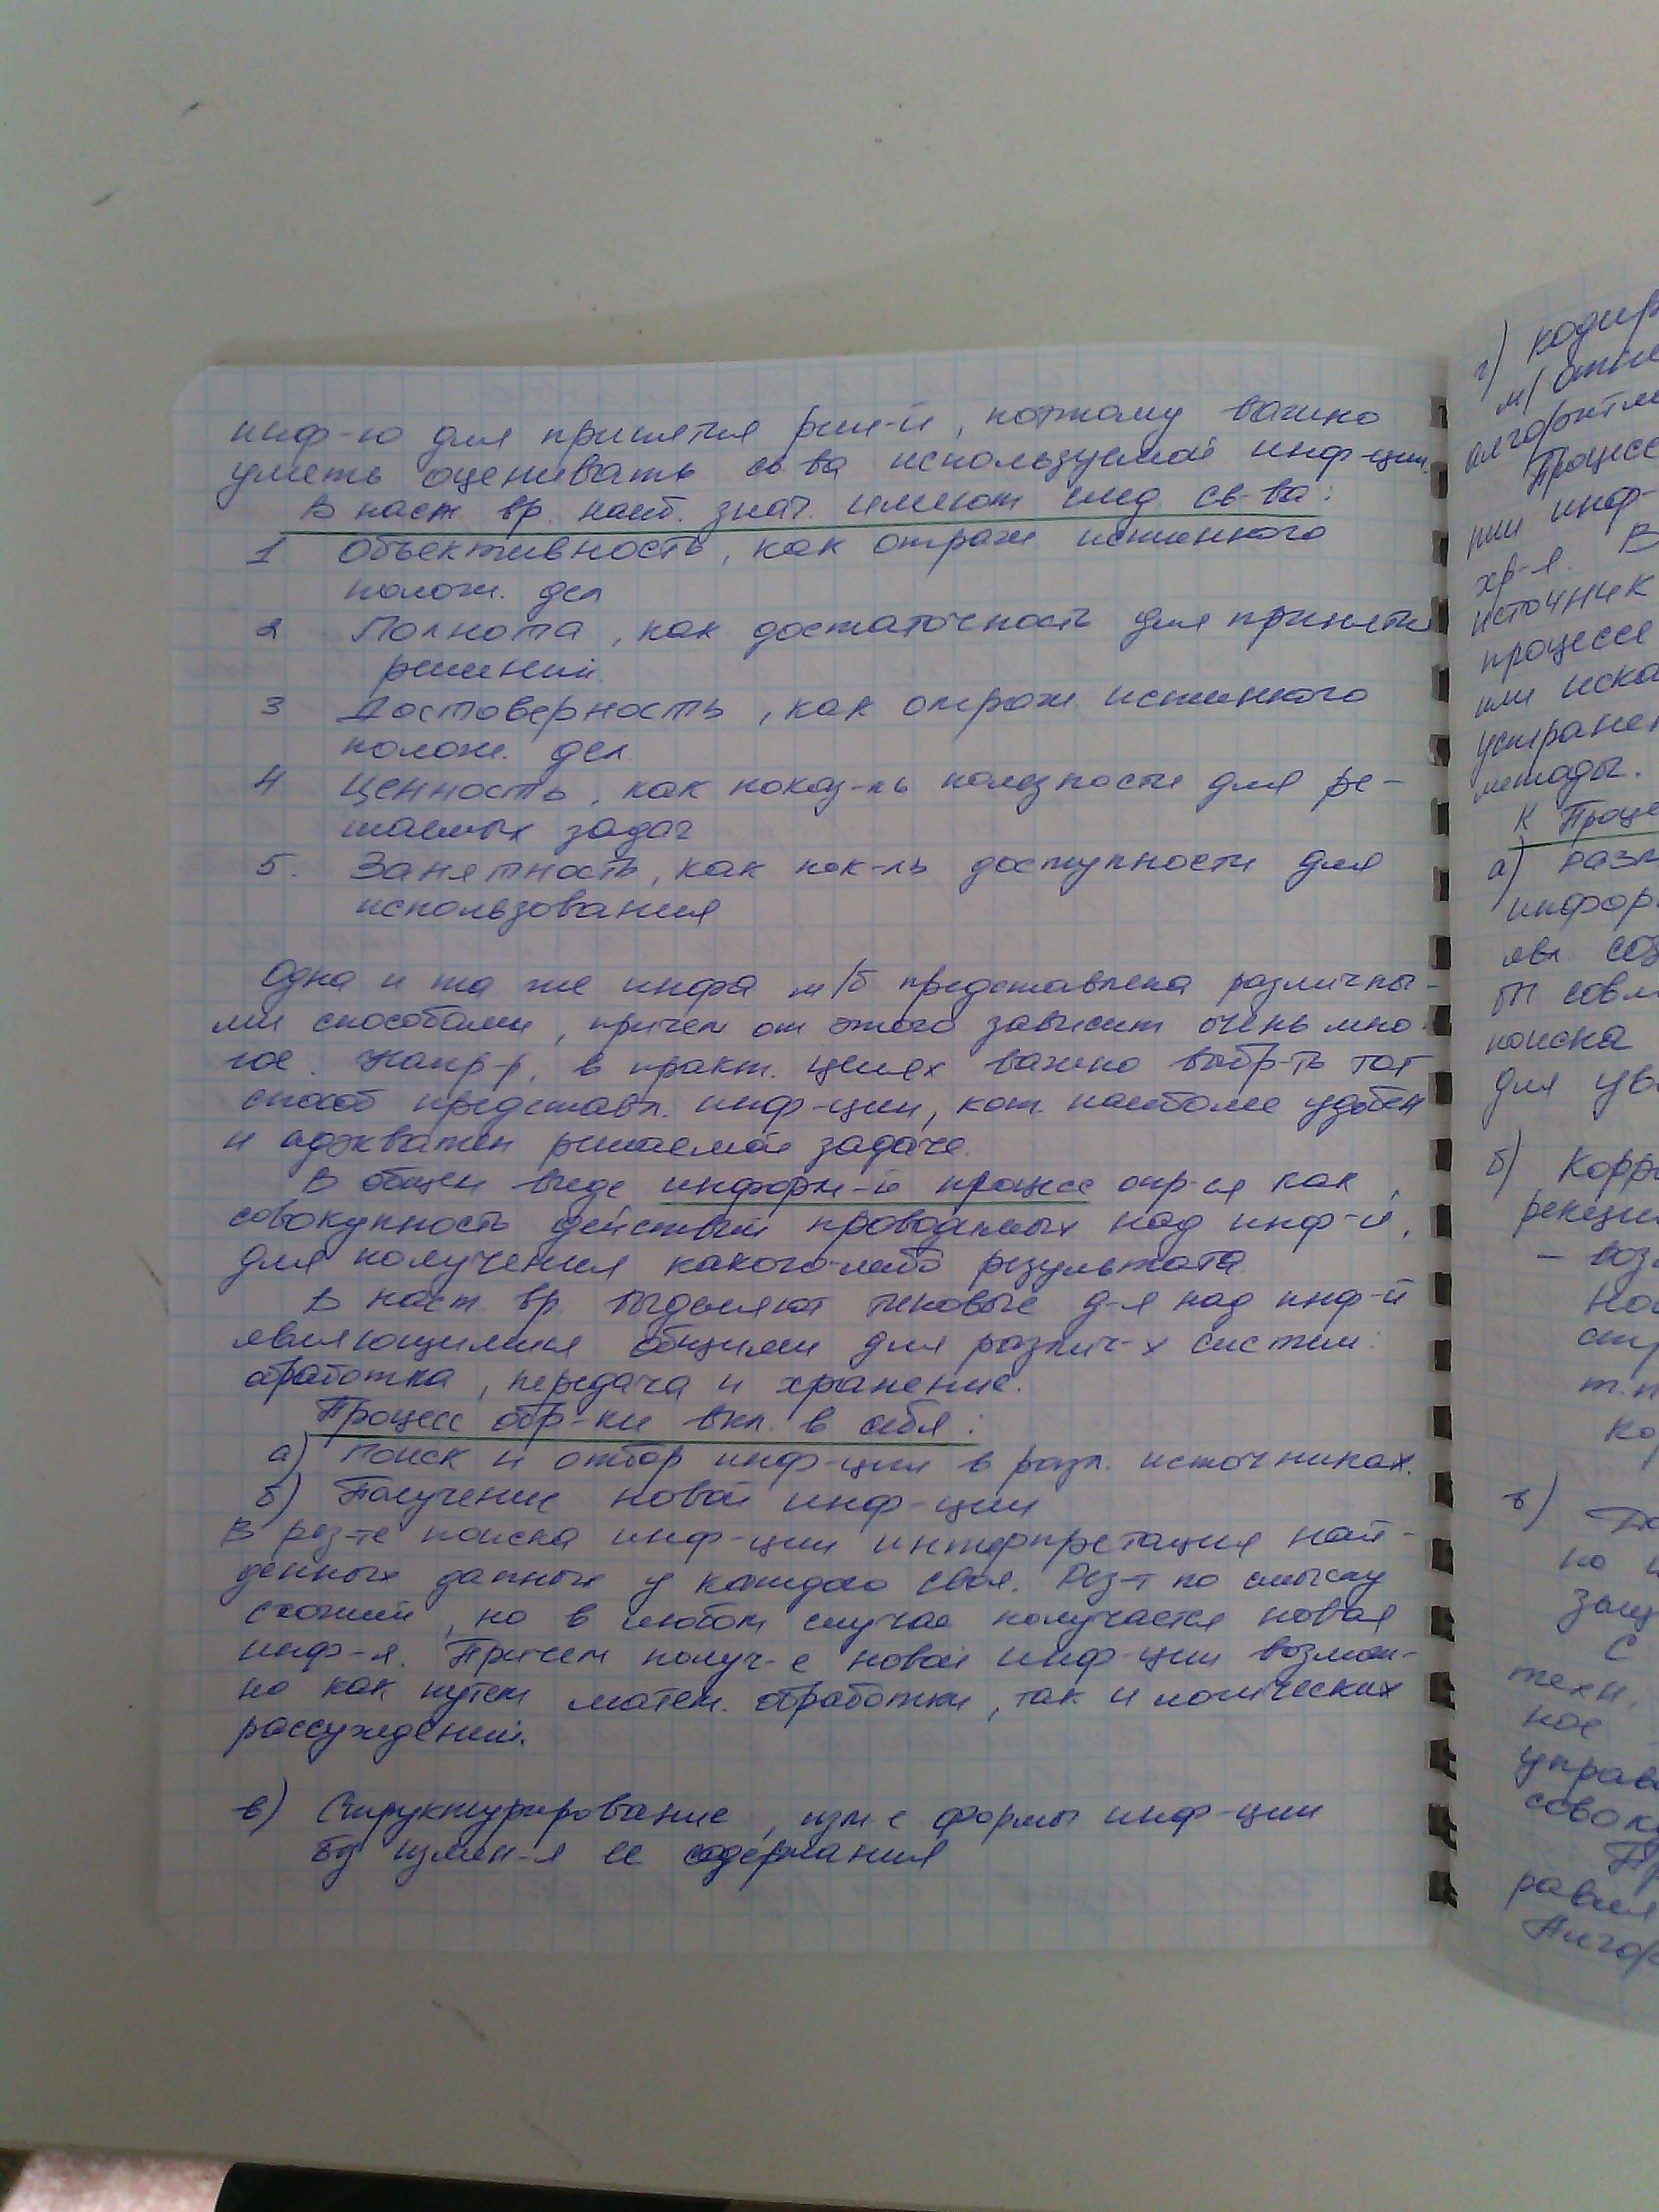 инф-ю для принятия реш-й, поэтому важно
уметь оценивать св-ва используемой инф-ции.
В наст вр. наиб. знач. имеют след. св-ва:
1 Объективность, как отраж истинного
полож. дел
2 Полнота, как достаточность для принятия
решений.
3 Достоверность, как отраж. истинного
полож. дел.
4 Ценность, как показ-ль полезности для ре-
шаемых задач
5. Занятность, как пок-ль доступности для
использования
Одна и та же инфа м/б представлена различны-
ми способами, причем от этого зависит очень мно-
гое. Напр-р, в практ. целях важно выбр-ть тот
способ представл. инф-ции, кот. наиболее удобен
и адекватен решаемой задаче.
В общем виде информ-й процесс опр-ся как
совокупность действий проводимых над инф-й,
для получения какого-либо результата.
В наст. вр. выделяют типовые д-я над инф-й
являющимися общими для различ-х систем:
обработка, передача и хранение.
Процесс обр-ки вкл. в себя:
а) Поиск и отбор инф-ции в разл. источниках.
б) Получение новой инф-ции
В рез-те поиска инф-ции интерпретация най-
денных данных у каждого своя. Рез-т по смыслу
схожий, но в любом случае получается новая
инф-я. Причем получ-е новой инф-ции возмож-
но как путем матем. обработки, так и логических
рассуждений.
в) Структурирование, изм-е формы инф-ции
без измен-я ее содержания
г) кодир
м/
алгоритм
Процесс
инф-
хр-я. В
источник
процессе
или иска
устране
методы.
К Проце
а) разм
инфор
явл. соз
совм
поиска
для ув
б) Корр
рекции
- воз
но
стр
т.п
Ко
в)
но
защ
С
техн.
ное
управ
совоку
Пр
равил
Алгор